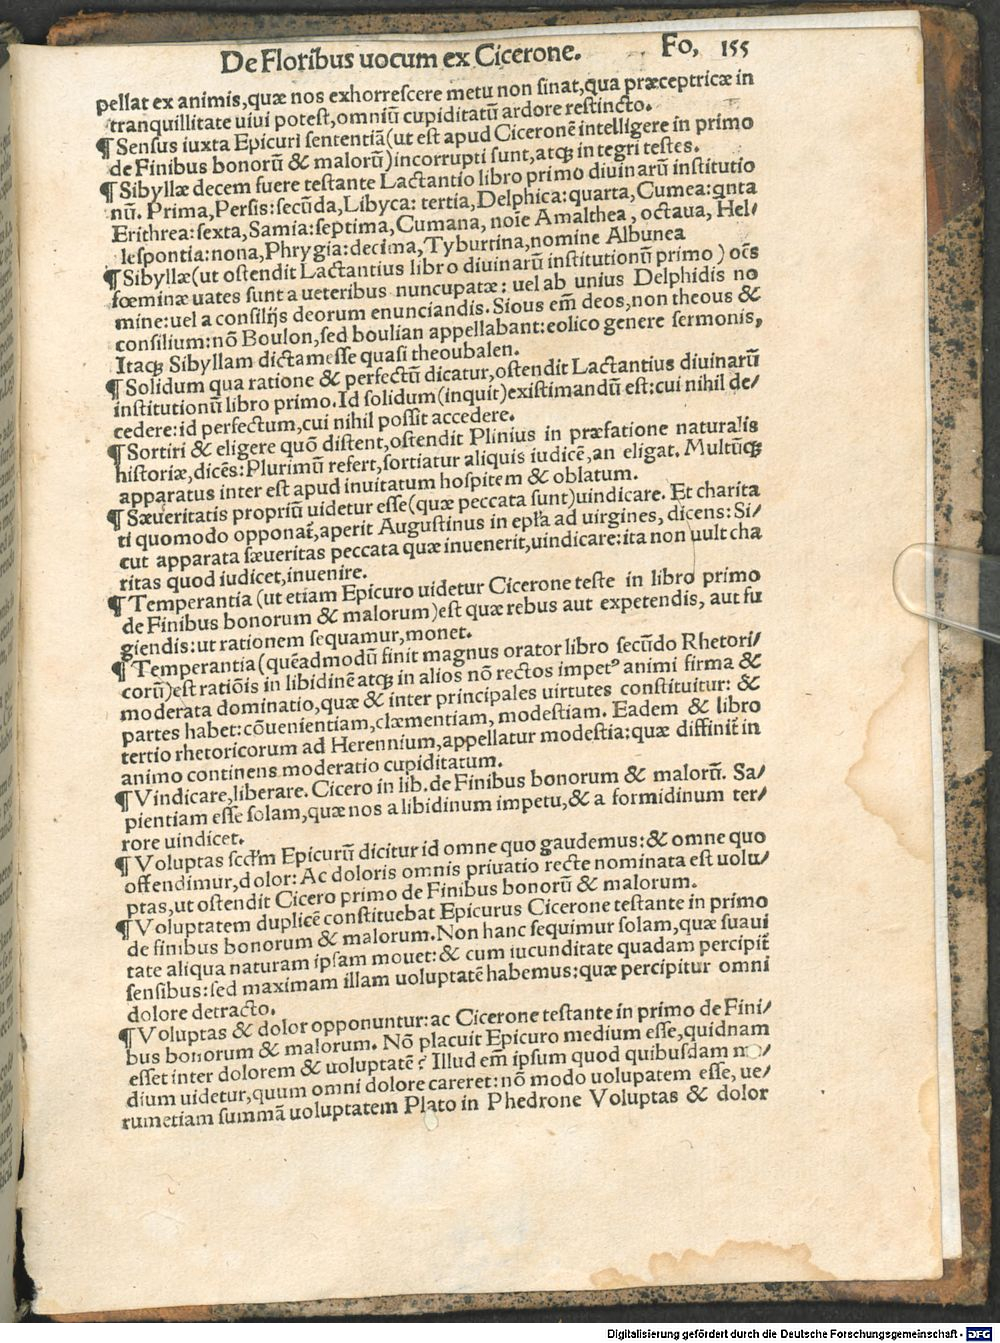 De Floribus uocum ex Cicerone. Fo, 155
pellat ex animis,quæ nos exhorrescere metu non sinat,qua præceptricæ in
tranquillitate uiui potest,omniũ cupiditatũ ardore restincto.
¶ Sensus iuxta Epicuri sententiã(ut est apud Ciceronẽ intelligere in primo
de Finibus bonorũ & malorũ)incorrupti sunt,atqȝ in tegri testes.
¶ Sibyllæ decem fuere testante Lactantio libro primo diuinarũ institutio
nũ. Prima,Persis:secũda,Libyca: tertia,Delphica:quarta,Cumea:qnta
Erithrea:sexta,Samia:septima,Cumana, noĩe Amalthea, octaua, Hel/
lespontia:nona,Phrygia:decima,Tyburtina,nomine Albunea
¶ Sibyllæ(ut ostendit Lactantius libro diuinarũ institutionũ primo) oẽs
fœminæ uates sunt a ueteribus nuncupatæ: uel ab unius Delphidis no
mine:uel a consilijs deorum enunciandis. Sious em̃ deos,non theous &
consilium:nõ Boulon,sed boulian appellabant:eolico genere sermonis,
Itaqȝ Sibyllam dictamesse quasi theoubalen.
¶ Solidum qua ratione & perfectũ dicatur,ostendit Lactantius diuinarũ
institutionũ libro primo. Id solidum(inquit)existimandũ est:cui nihil de/
cedere:id perfectum,cui nihil possit accedere.
¶ Sortiri & eligere quõ distent,ostendit Plinius in præfatione naturalis
historiæ,dicẽs:Plurimũ refert,sortiatur aliquis iudicẽ,an eligat. Multũqȝ
apparatus inter est apud inuitatum hospitem & oblatum.
¶ Sæueritatis propriũ uidetur esse(quæ peccata sunt)uindicare. Et charita
ti quomodo opponat̃,aperit Augustinus in epl̃a ad uirgines, dicens: Si/
cut apparata sæueritas peccata quæ inuenerit,uindicare:ita non uult cha
ritas quod iudicet,inuenire.
¶ Temperantia (ut etiam Epicuro uidetur Cicerone teste in libro primo
de Finibus bonorum & malorum)est quæ rebus aut expetendis, aut fu
giendis:ut rationem sequamur,monet.
¶ Temperantia(quẽadmodũ finit magnus orator libro secũdo Rhetori/
corũ)est ratiõis in libidinẽ atqȝ in alios nõ rectos impetꝰ animi firma &
moderata dominatio,quæ & inter principales uirtutes constituitur: &
partes habet:cõuenientiam,clæmentiam, modestiam. Eadem & libro
tertio rhetoricorum ad Herennium,appellatur modestia:quæ diffinit̃ in
animo continens moderatio cupiditatum.
¶ Vindicare,liberare. Cicero in lib. de Finibus bonorum & malorũ. Sa/
pientiam esse solam,quæ nos a libidinum impetu,& a formidinum ter/
rore uindicet.
¶ Voluptas scd̃m Epicurũ dicitur id omne quo gaudemus:& omne quo
offendimur,dolor: Ac doloris omnis priuatio recte nominata est uolu/
ptas,ut ostendit Cicero primo de Finibus bonorũ & malorum.
¶ Voluptatem duplicẽ constituebat Epicurus Cicerone testante in primo
de finibus bonorum & malorum.Non hanc sequimur solam,quæ suaui
tate aliqua naturam ipsam mouet:& cum iucunditate quadam percipit̃
sensibus:sed maximam illam uoluptatẽ habemus:quæ percipitur omni
dolore detracto.
¶ Voluptas & dolor opponuntur:ac Cicerone testante in primo de Fini/
bus bonorum & malorum. Nõ placuit Epicuro medium esse,quidnam
esset inter dolorem & uoluptatẽ? Illud em̃ ipsum quod quibusdam
dium uidetur,quum omni dolore careret:nõ modo uolupatem esse, ue/
rumetiam summã uoluptatem Plato in Phedrone Voluptas & dolor
Digitalisierung gefördert durch die Deutsche Forschungsgemeinschaft - DFG